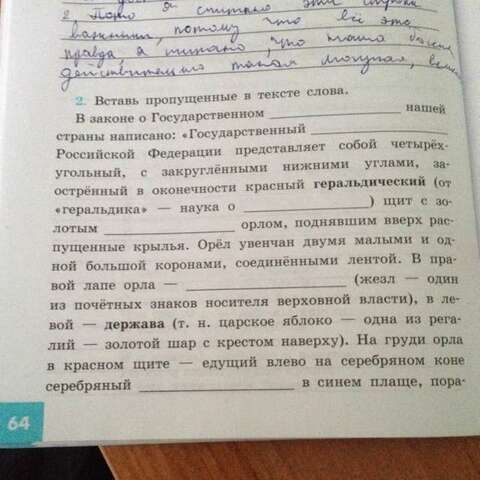 2. Пото я считаю эти
важными, потому что всё это
правда, а
действительно такая могучая,
2. Вставь пропущенные в тексте слова.
В законе о Государственном нашей
страны написано: «Государственный
Российской Федерации представляет собой четырёх-
угольный, с закруглёнными нижними углами, за-
острённый в оконечности красный геральдический (от
«геральдика» — наука о ) щит с зо-
лотым орлом, поднявшим вверх рас-
пущенные крылья. Орёл увенчан двумя малыми и од-
ной большой коронами, соединёнными лентой. В пра-
вой лапе орла — (жезл — один
из почётных знаков носителя верховной власти), в ле-
вой — держава (т. н. царское яблоко — одна из рега-
лий — золотой шар с крестом наверху). На груди орла
в красном щите — едущий влево на серебряном коне
серебряный в синем плаще, пора-
64